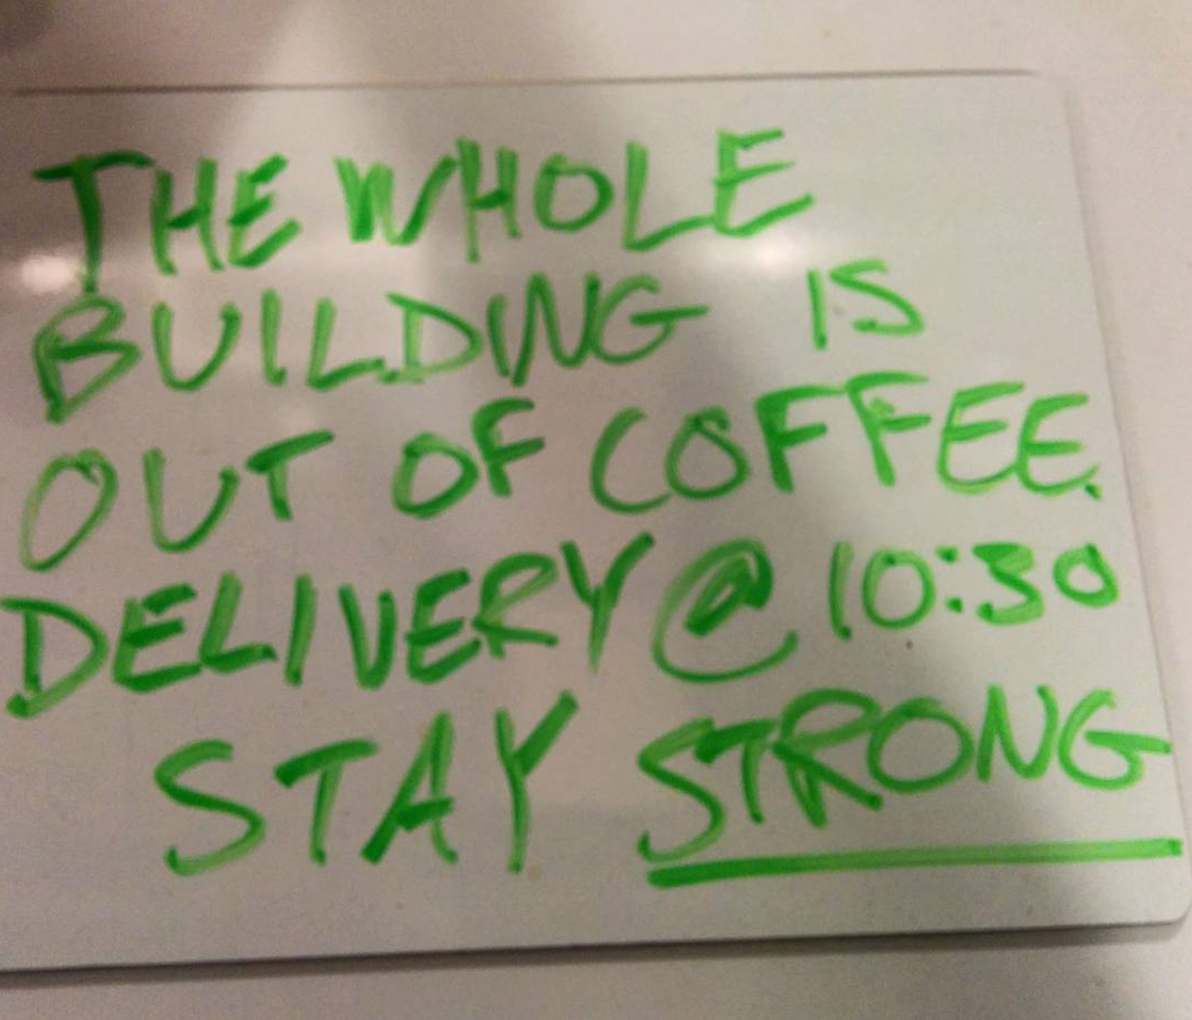 THE WHOLE
BUILDING IS
OUT OF COFFEE.
DELIVERY @ 10:30
STAY STRONG